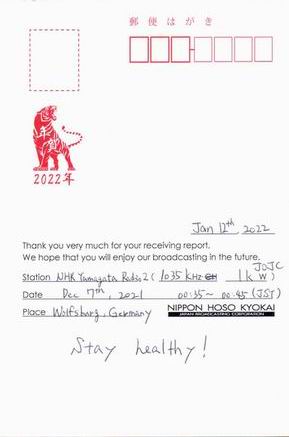 郵便はがき
年賀
2022年
Jan 12th, 2022
Thank you very much for your receiving report.
We hope that you will enjoy our broadcasting in the future.
JOJC
Station NHK Yamagata Radio 2 (1035 kHz 1kW)
Date Dec 7th, 2021 00:35~ 00:45 (JST)
Place Wolfsburg, Germany NIPPON HOSO KYOKAI
JAPAN BROADCASTING CORPORATION
Stay healthy!